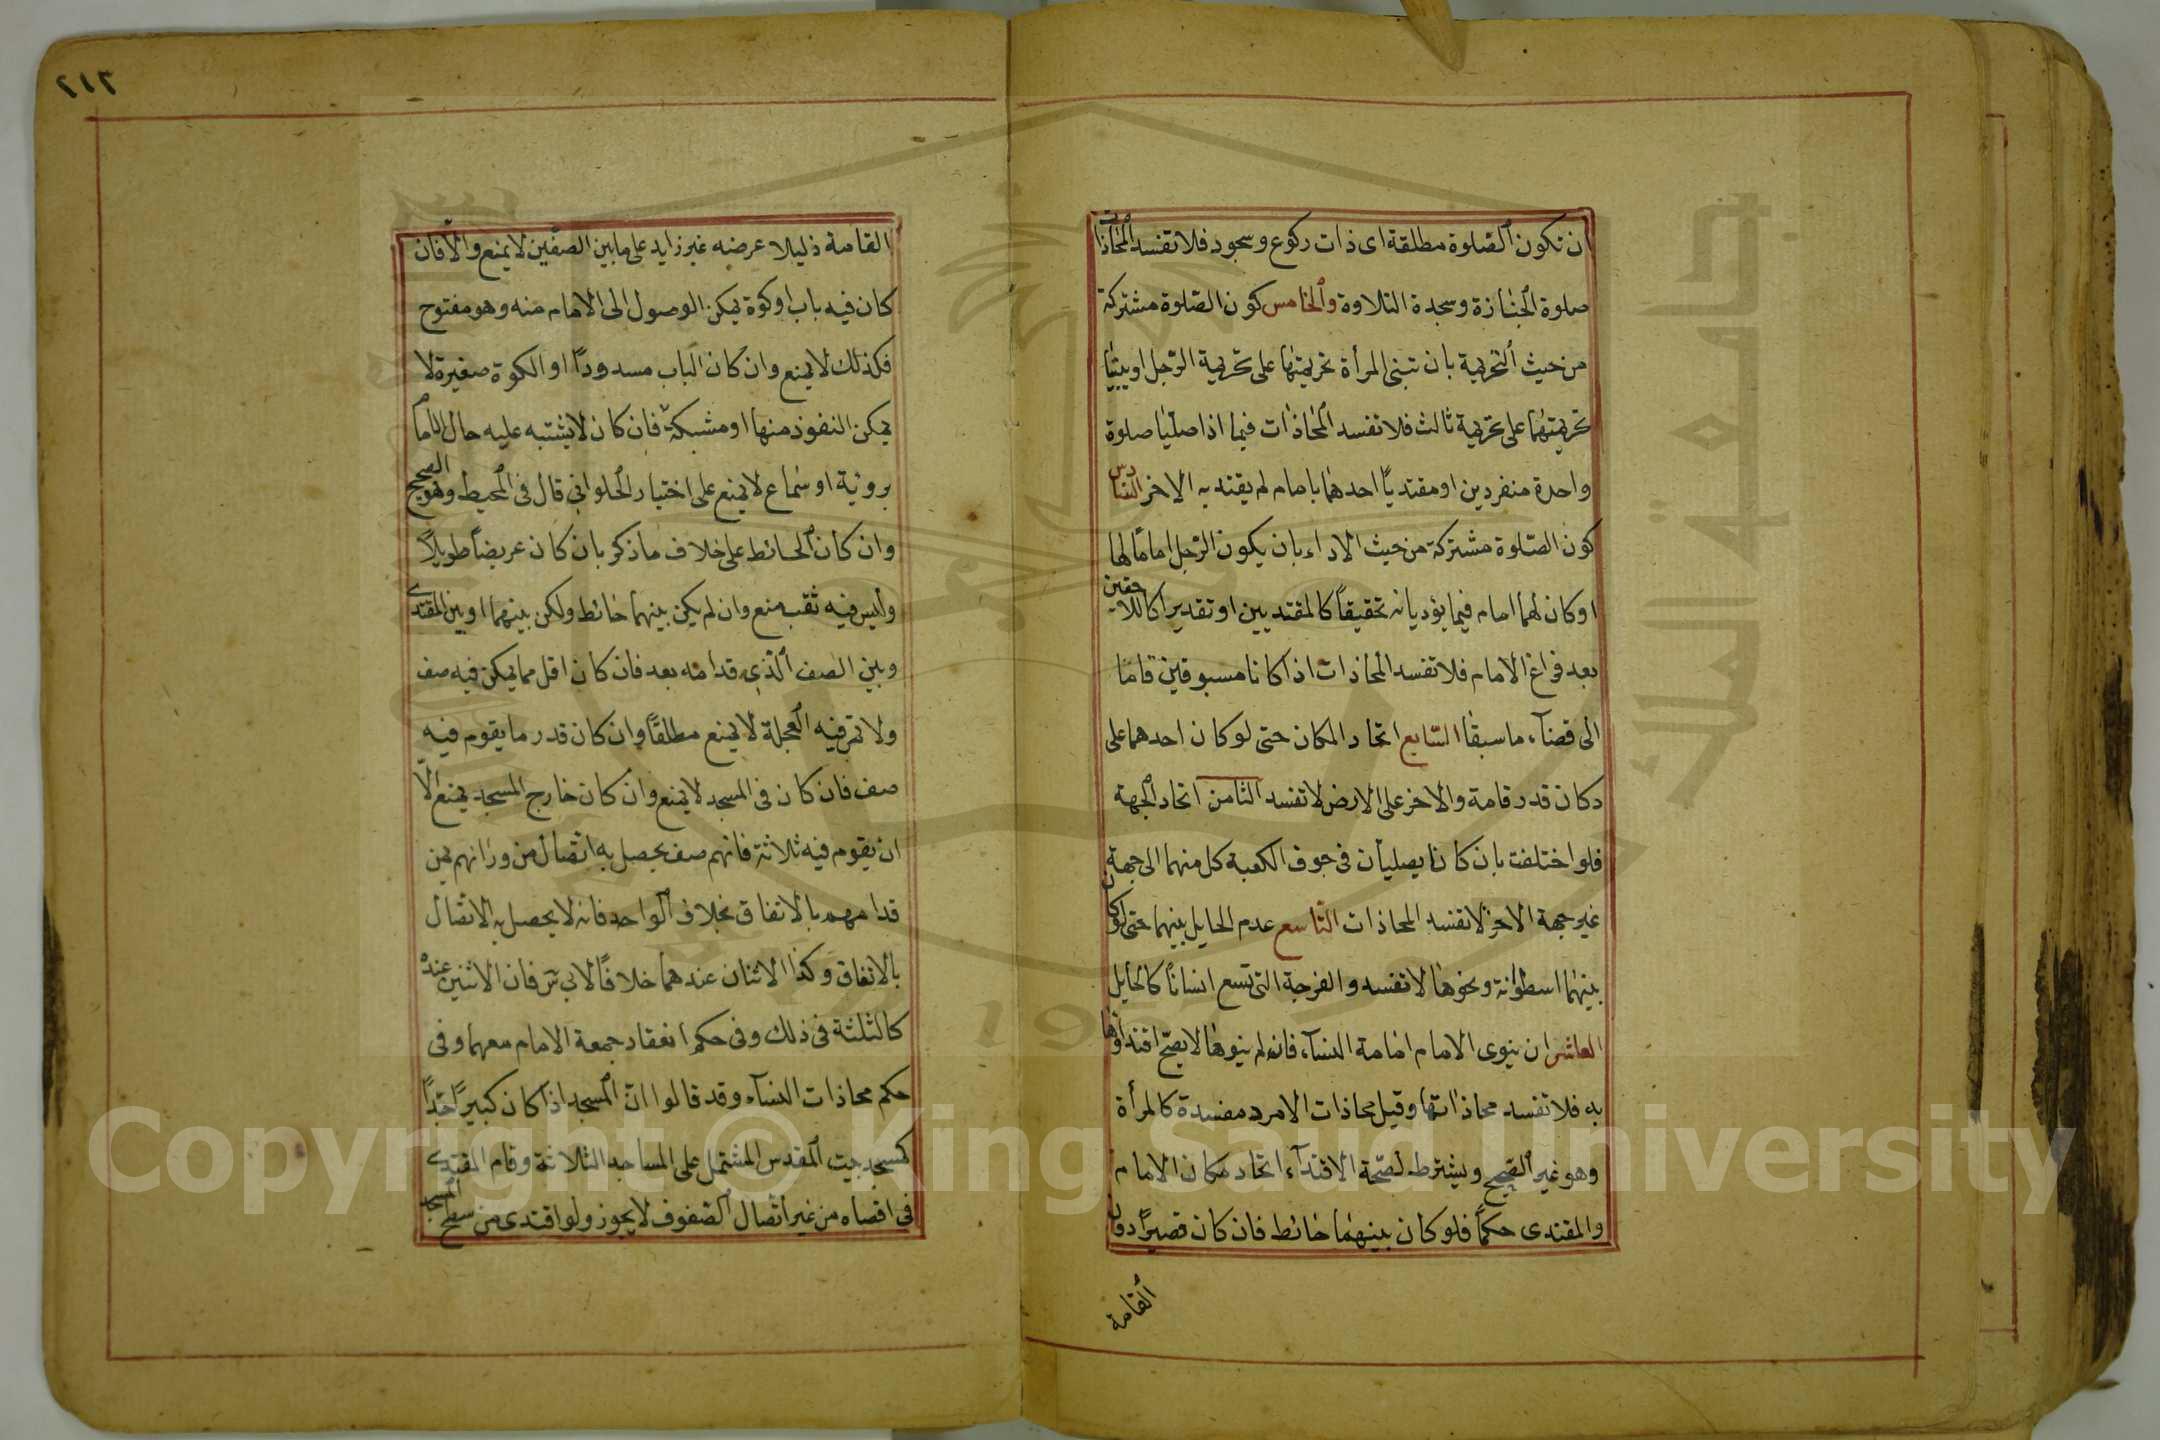 ان تكون الصلوة مطلقة اى ذات ركوع وسجود فلا تفسد المحاذات
صلوة الجنازة وسجدة التلاوة والخامس كون الصلوة مشتركة
من حيث التحريمة بان تبنى المرأة تحريمتها على تحريمة الرجل او يبنيا
تحريمتهما على تحريمة ثالث فلا تفسد المحاذات فيما اذا صليا صلوة
واحدة منفردين او مقتديًا احدهما بامام لم يقتد به الاخر السادس
كون الصلوة مشتركة من حيث الاداء بان يكون الرجل امامًا لها
او كان لهما امام فيما يؤديانه تحقيقًا كالمقتديين او تقديرا كاللاحقين
بعد فراغ الامام فلا تفسد المحاذات اذا كانا مسبوقين قاما
الى قضآء ما سبقا السابع اتحاد المكان حتى لو كان احدهما على
دكان قدر قامة والاخر على الارض لا تفسد الثامن اتحاد الجهة
فلو اختلفت بان كانا يصليان فى جوف الكعبة كل منهما الى جهة
غير جهة الاخر لا تفسد المحاذات التاسع عدم الحايل بينهما حتى لو كان
بينهما اسطوانة ونحوها لا تفسد والفرجة التى تسع انسانًا كالحايل
العاشر ان ينوى الامام امامة النسآء فانه لم ينوها لا يصح اقتداؤها
به فلا تفسد محاذاتها وقيل محاذات الامرد مفسدة كالمرأة
وهو غير الصحيح ويشترط لصحة الاقتدآء اتحاد مكان الامام
والمقتدى حكمًا فلو كان بينهما حائط فان كان قصيرًا دون
القامة
٢١٣
القامة ذليلا عرضه غير زايد على ما بين الصفين لا يمنع والا فان
كان فيه باب او كوة يمكن الوصول الى الامام منه وهو مفتوح
فكذلك لا يمنع وان كان الباب مسدودًا او الكوة صغيرة لا
يمكن النفوذ منها او مشبكة فان كان لا يشتبه عليه حال الامام
برؤية او سماع لا يمنع على اختيار الحلوانى قال فى المحيط وهو الصحيح
وان كان الحائط على خلاف ما ذكر بان كان عريضًا طويلًا
وليس فيه ثقب منع وان لم يكن بينهما حائط ولكن بينهما او بين المقتدى
وبين الصف الذى قدامه بعد فان كان اقل مما يمكن فيه صف
ولا تمر فيه العجلة لا يمنع مطلقًا وان كان قدر ما يقوم فيه
صف فان كان فى المسجد لا يمنع وان كان خارج المسجد يمنع الا
ان يقوم فيه ثلاثة فانهم صف يحصل به اتصال من ورائهم بمن
قدامهم بالاتفاق بخلاف الواحد فانه لا يحصل به الاتصال
بالاتفاق وكذا الاثنان عندهما خلافًا لابى س فان الاثنين عنده
كالثلثة فى ذلك وفى حكم انعقاد جمعة الامام معهما وفى
حكم محاذات النسآء وقد قالوا ان المسجد اذا كان كبيرًا جدًا
كمسجد بيت المقدس المشتمل على المساجد الثلاثة وقام المقتدى
فى اقصاه من غير اتصال الصفوف لا يجوز ولو اقتدى من سطح المسجد
جامعة الملك سعود
1957
Copyright © King Saud University